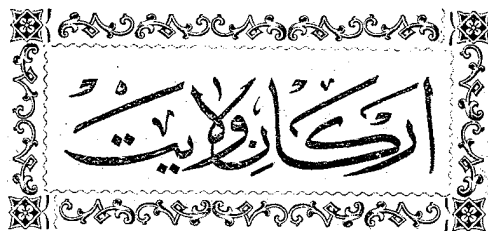 ارکانِ ولایت